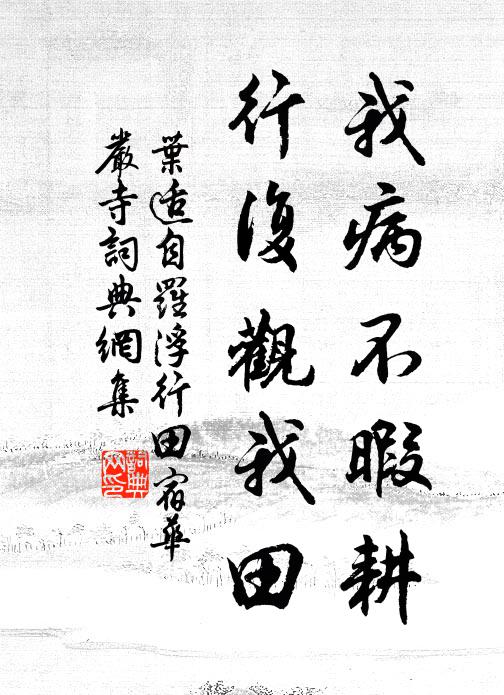 我病不暇耕
行復觀我田
葉適自羅浮行田宿華
嚴寺詞典網集
詞典網印